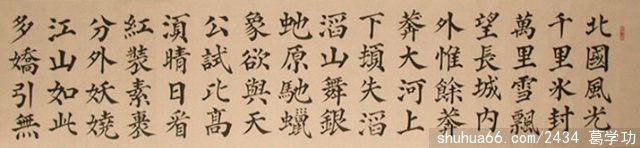 北國風光
千里氷封
萬里雪飄
望長城内
外惟餘莽
莽大河上
下頓失滔
滔山舞銀
虵原馳蠟
象欲與天
公試比髙
湏晴日看
紅裝素裹
分外妖嬈
江山如此
多嬌引無
shuhua66.com/2434 葛学功